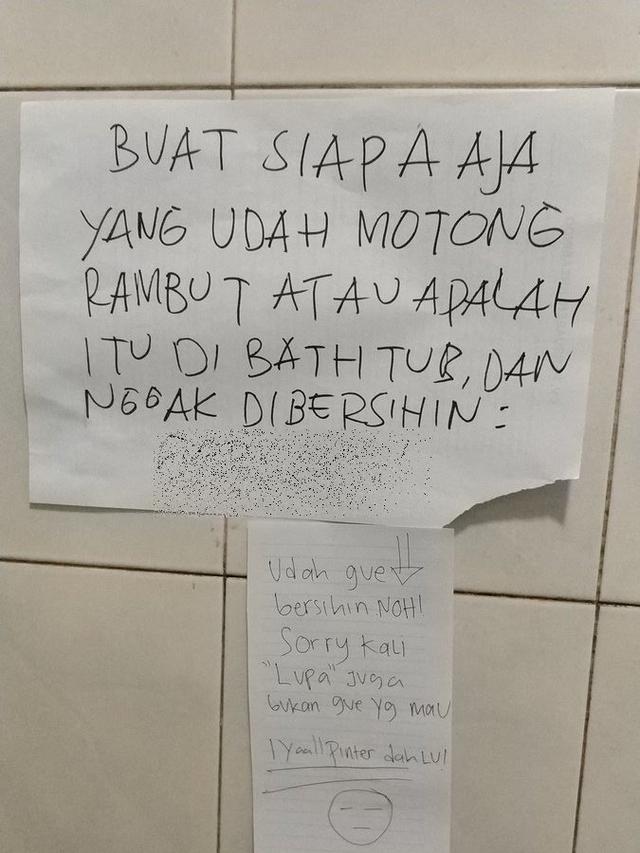 BUAT SIAPA AJA
YANG UDAH MOTONG
RAMBUT ATAU APALAH
ITU DI BATHTUB, DAN
NGGAK DIBERSIHIN :
Udah gue
bersihin NOH!
Sorry kali
"Lupa" juga
bukan gue yg mau
Iyaa!! Pinter dah LU!